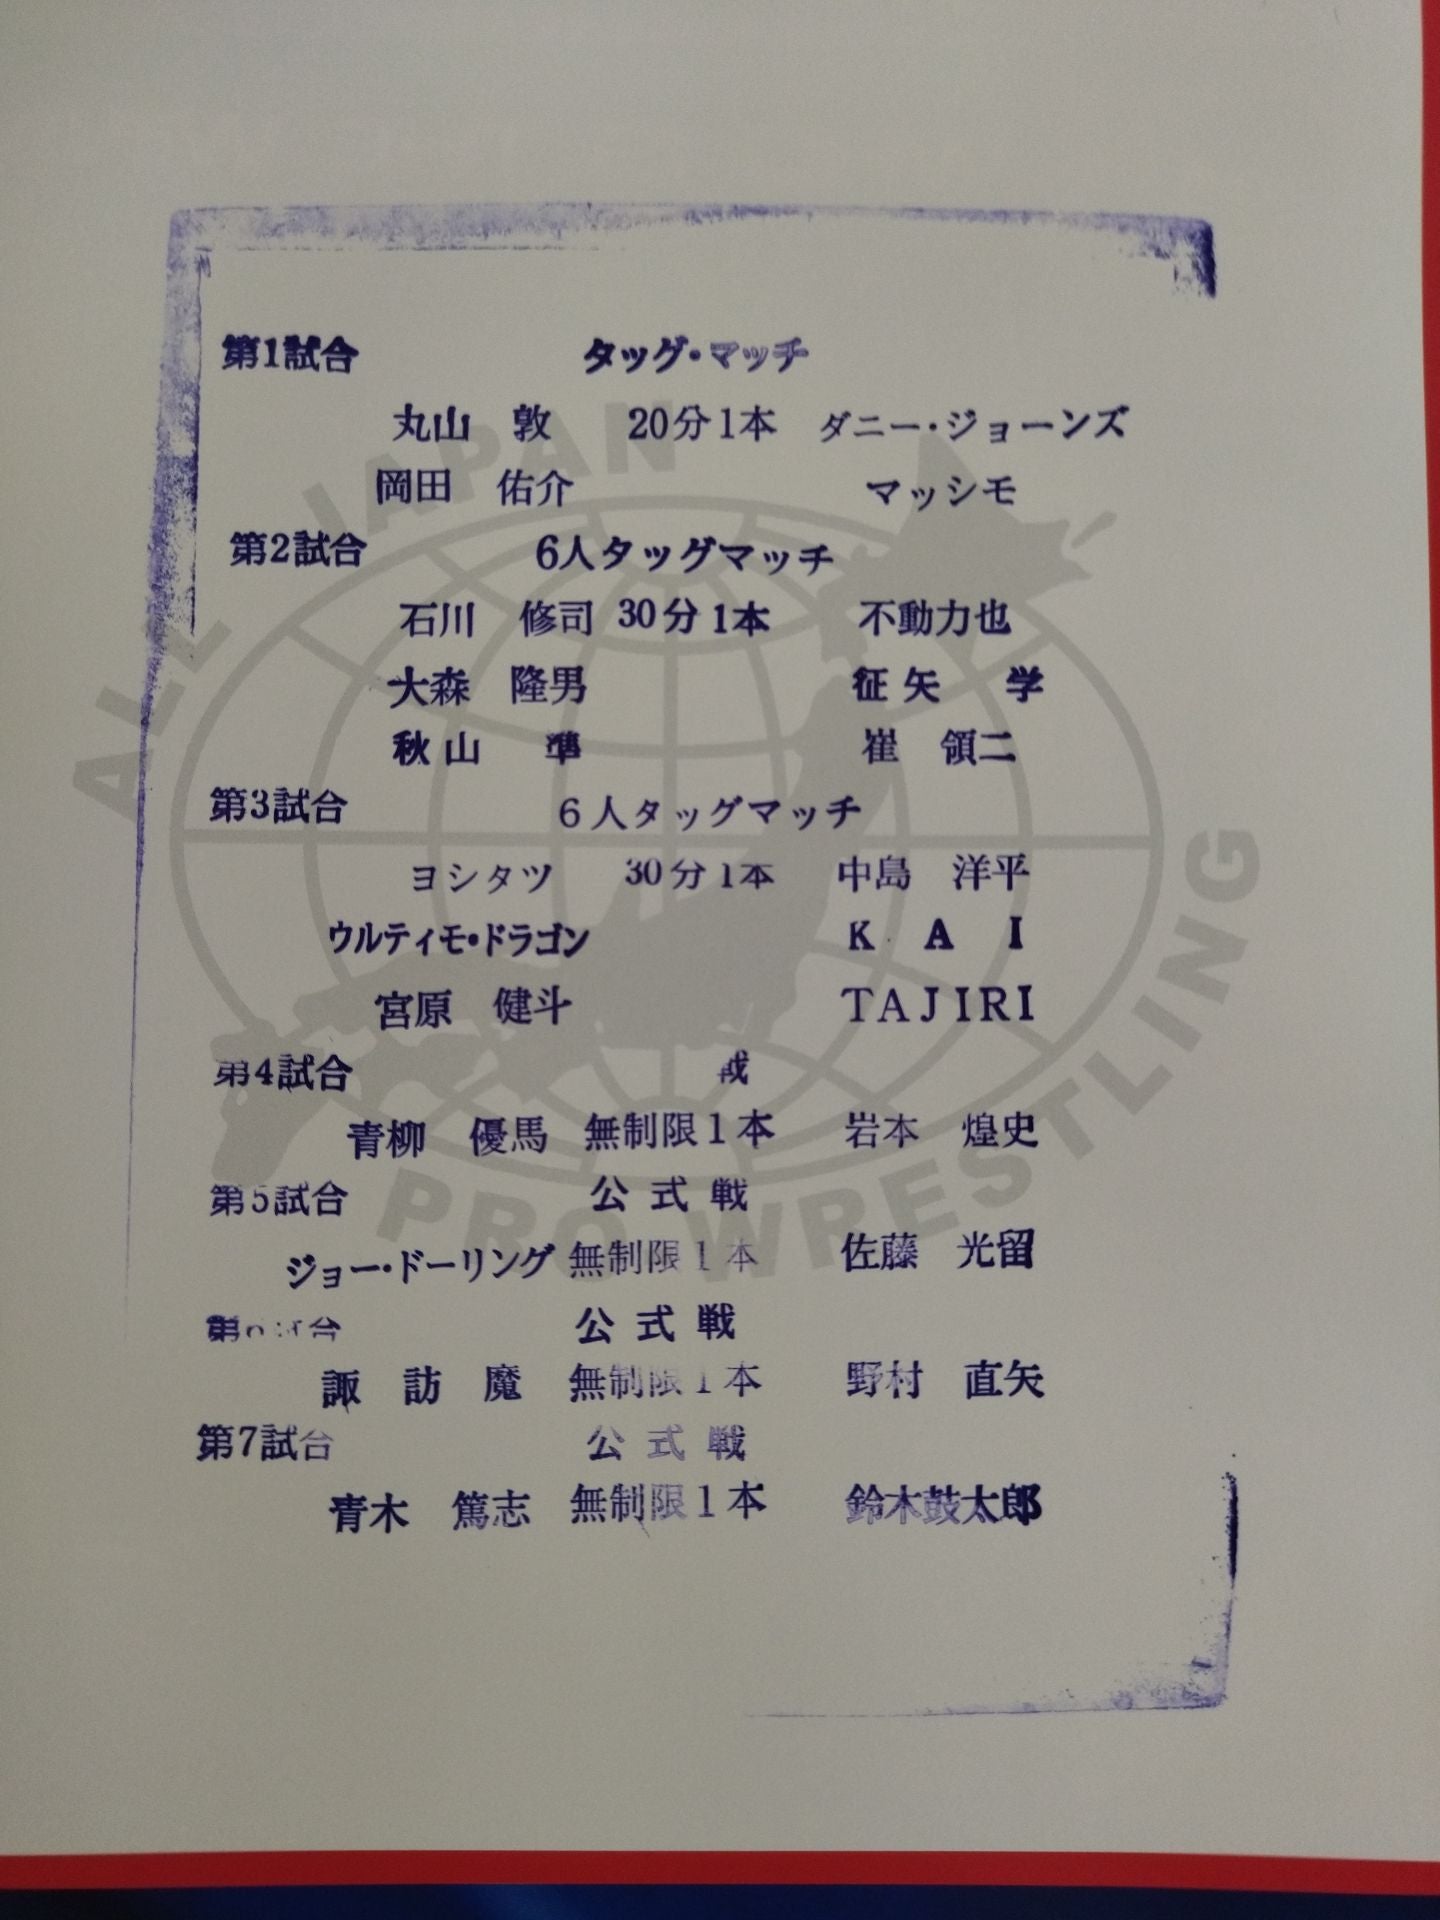 第1試合 タッグ・マッチ
丸山 敦 20分1本 ダニー・ジョーンズ
岡田 佑介 マッシモ
第2試合 6人タッグマッチ
石川 修司 30分1本 不動力也
大森 隆男 征矢 学
秋山 準 崔 領二
第3試合 6人タッグマッチ
ヨシタツ 30分1本 中島 洋平
ウルティモ・ドラゴン K A I
宮原 健斗 TAJIRI
第4試合 戦
青柳 優馬 無制限1本 岩本 煌史
第5試合 公式戦
ジョー・ドーリング 無制限1本 佐藤 光留
公式戦
諏訪魔 無制限1本 野村 直矢
第7試合 公式戦
青木 篤志 無制限1本 鈴木鼓太郎
ALL JAPAN
PRO WRESTLING